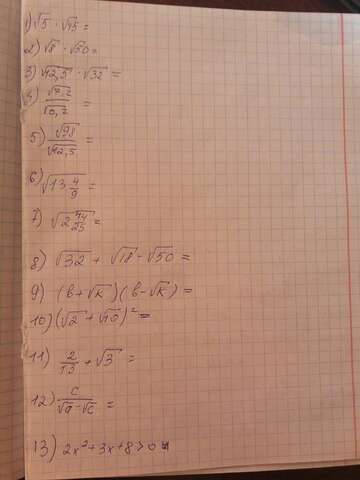 1) √5 · √45 =
2) √8 · √50 =
3) √12,5 · √32 =
4) √7,2 / √0,2 =
5) √98 / √12,5 =
6) √13 4/9 =
7) √2 14/25 =
8) √32 + √18 - √50 =
9) (b+√k)(b-√k) =
10) (√2 + √10)² =
11) 2/13 + √3 =
12) c/√a-√c =
13) 2x²+3x+8>0